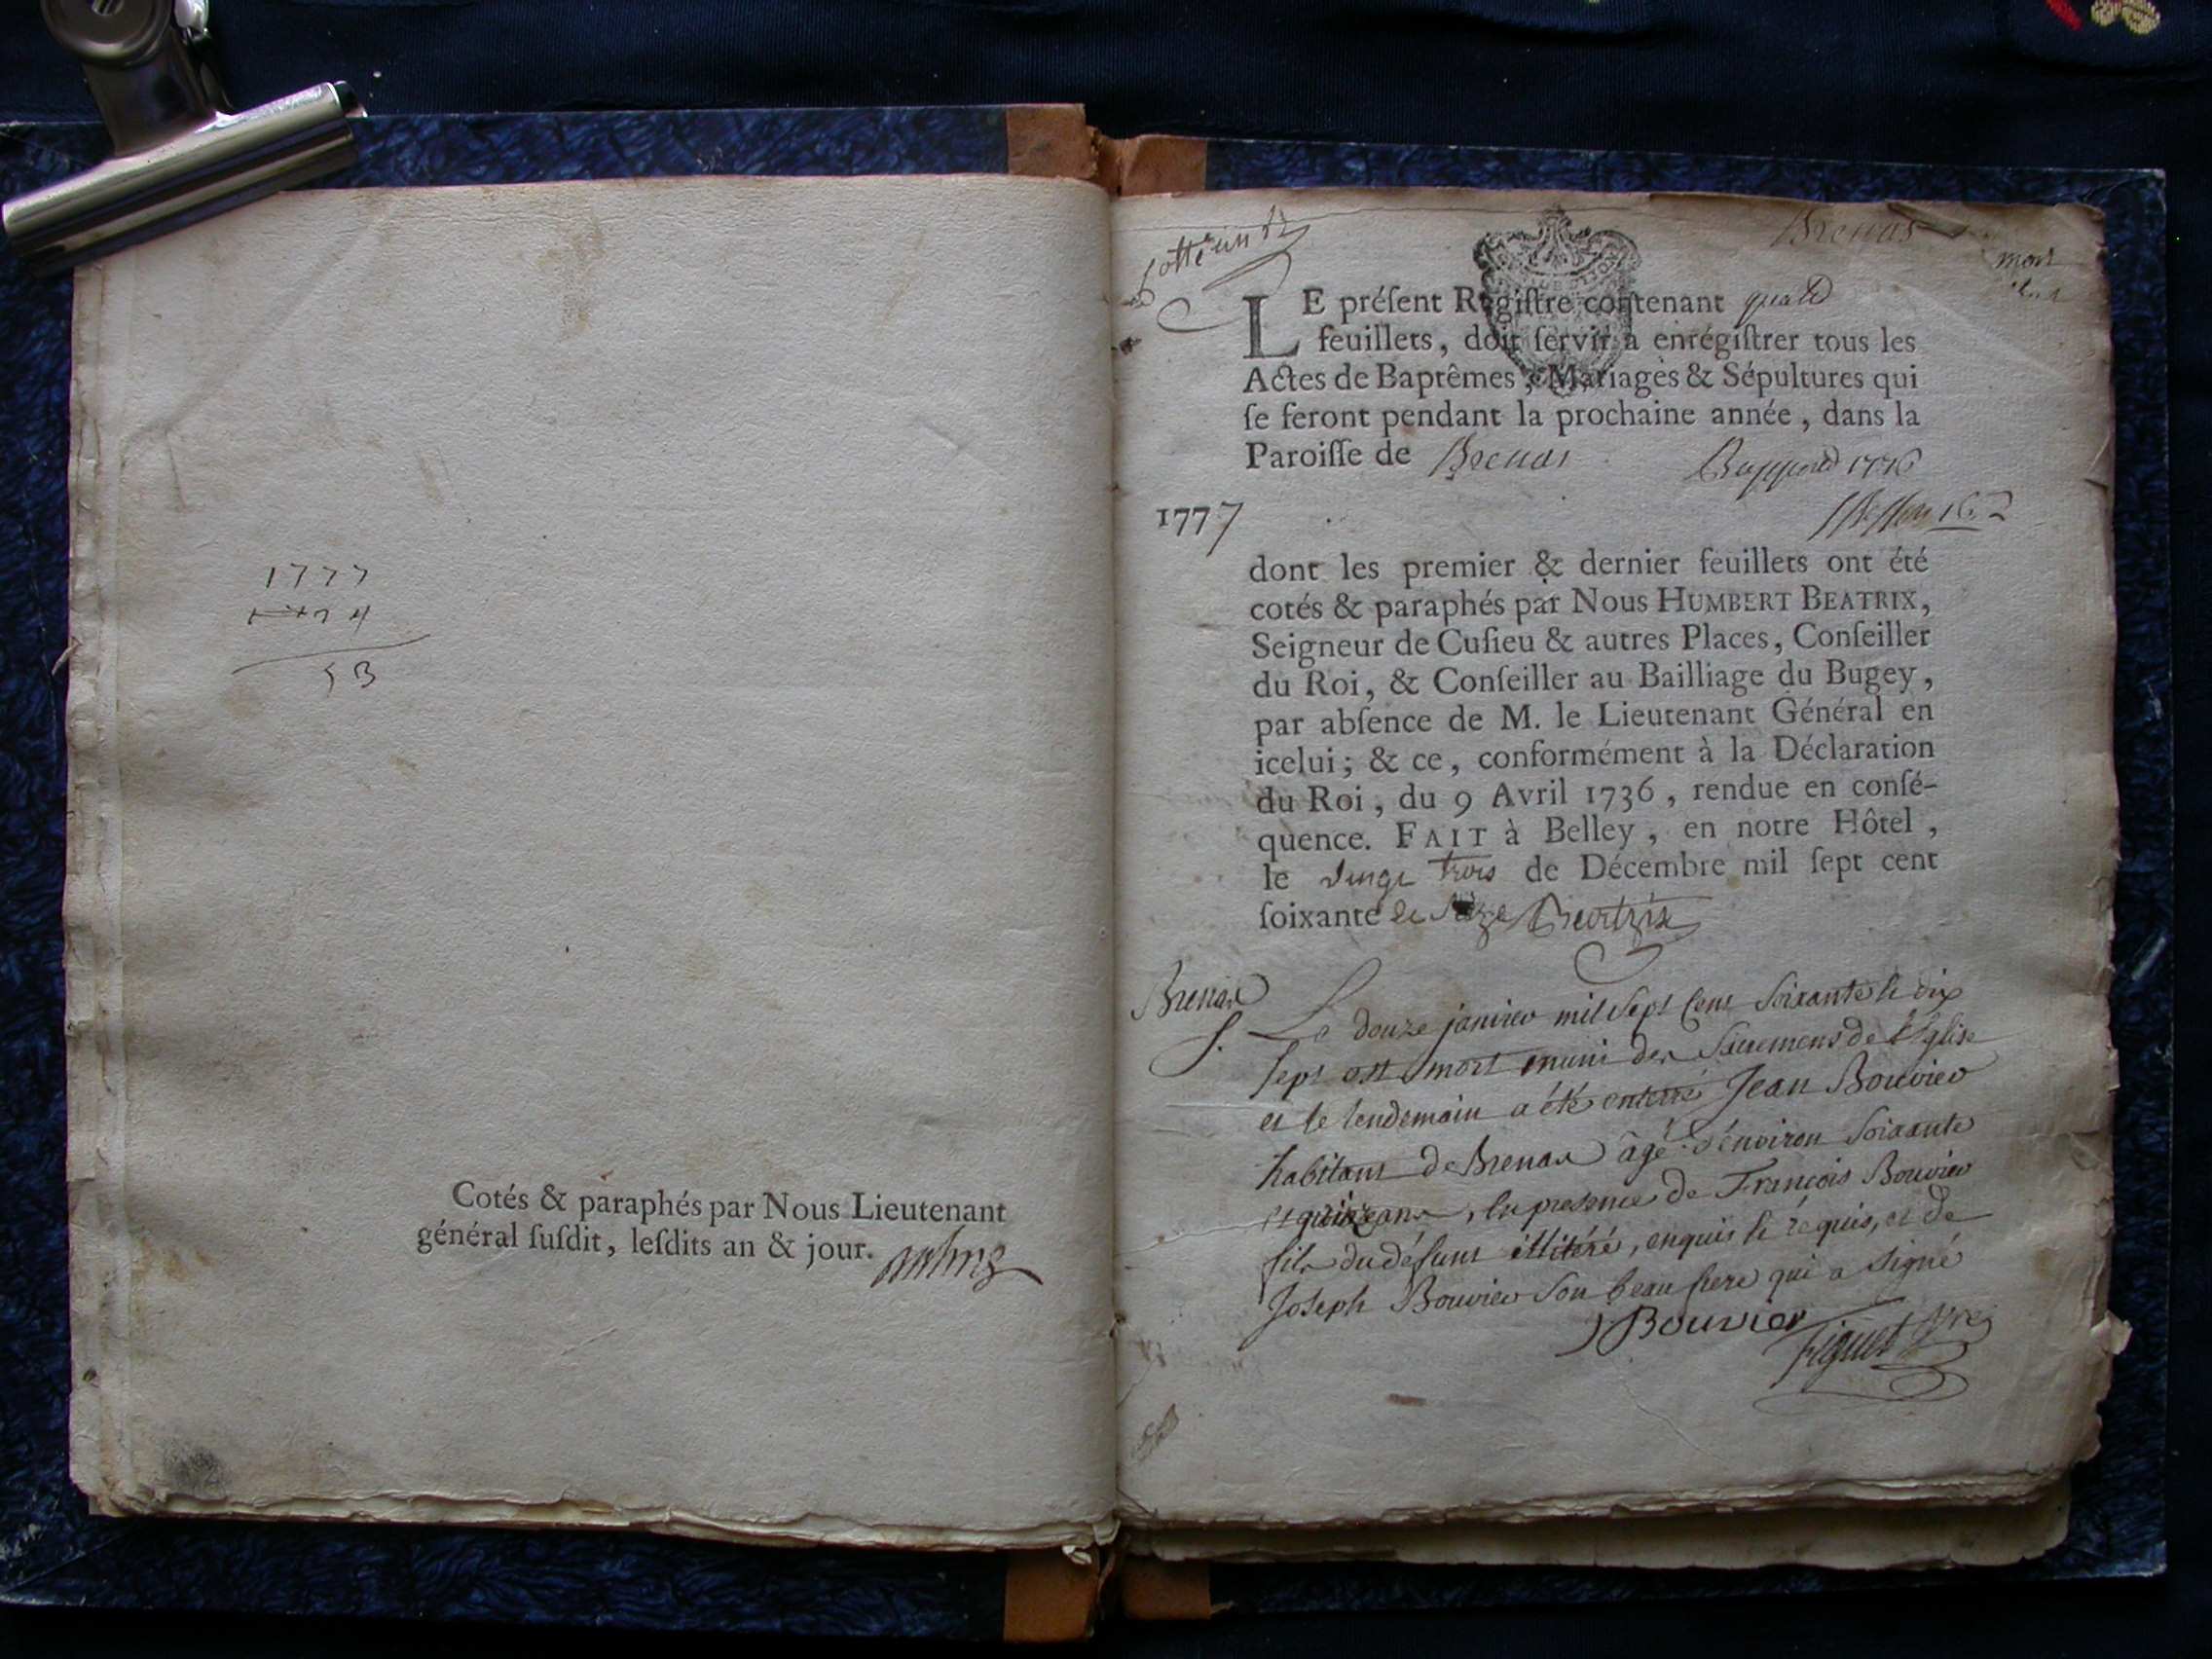 1777
53
Cotés & paraphés par Nous Lieutenant
général suſdit, leſdits an & jour.
Brenas
LE préſent Regiſtre contenant
feuillets, doit ſervir a enrégiſtrer tous les
Actes de Baptêmes, Mariages & Sépultures qui
ſe feront pendant la prochaine année, dans la
Paroiſſe de Brenas
1777
dont les premier & dernier feuillets ont été
cotés & paraphés par Nous HUMBERT BEATRIX,
Seigneur de Cuſieu & autres Places, Conſeiller
du Roi, & Conſeiller au Bailliage du Bugey,
par abſence de M. le Lieutenant Général en
icelui; & ce, conformément à la Déclaration
du Roi, du 9 Avril 1736, rendue en conſé-
quence. FAIT à Belley, en notre Hôtel,
le vingt trois de Décembre mil ſept cent
ſoixante et seize Beatrix
Brenas
S. Le douze janvier mil sept cent soixante et dix
sept est mort muni des Sacremens de l'Eglise
et le lendemain a été enterré Jean Bouvier
habitant de Brenas âgé d'environ soixante
et quinze ans, en presence de François Bouvier
fils du défunt illitéré, enquis et requis, et de
Joseph Bouvier son beau frere qui a signé
J Bouvier
Figuet